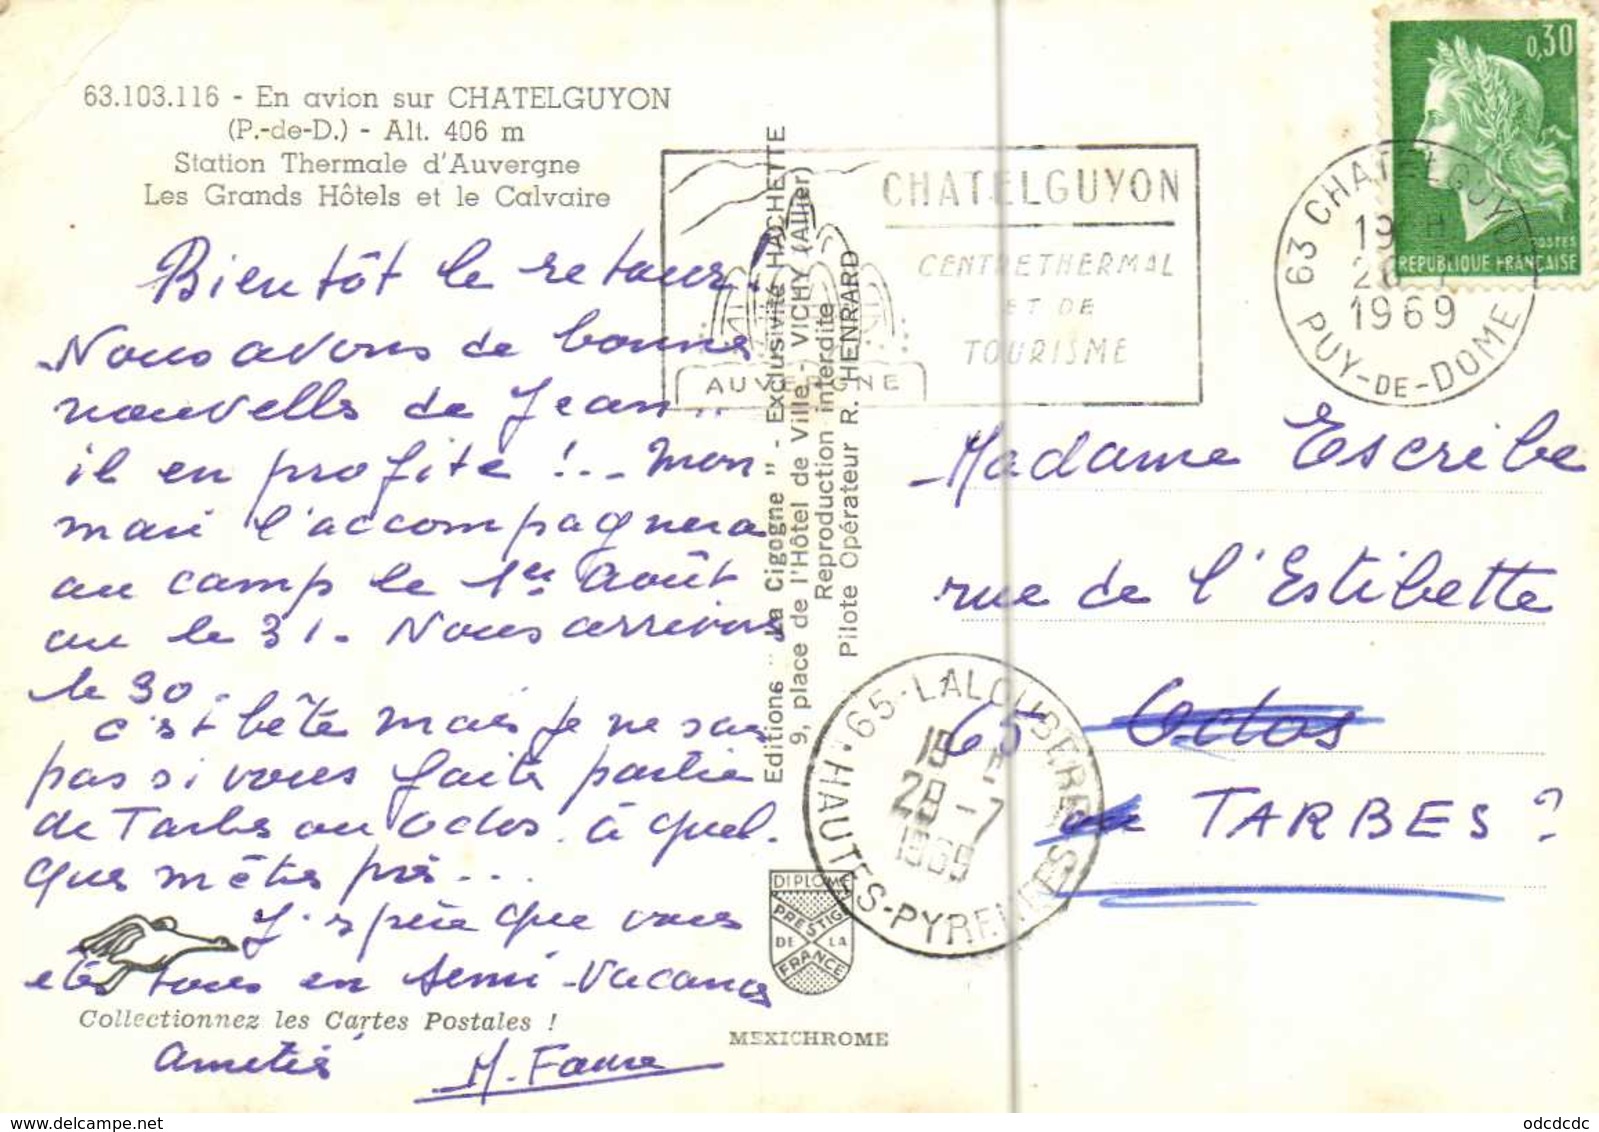 63.103.116 - En avion sur CHATELGUYON
(P.-de-D.) - Alt. 406 m
Station Thermale d'Auvergne
Les Grands Hôtels et le Calvaire
Bientôt le retour !
Nous avons de bonnes
nouvelles de Jean..
il en profite !... Mon
mari l'accompagnera
au camp le 1er Août
ou le 31. Nous arrivons
le 30.
C'est bête mais je ne sais
pas si vous faites partie
de Tarbes ou Odos. à quel-
ques mètres près...
J'espère que vous
êtes tous en semi-vacances
Collectionnez les Cartes Postales !
Amitiés
M. Faure
Editions "La Cigogne" - Exclusivité HACHETTE
9, place de l'Hôtel de Ville - VICHY (Allier)
Reproduction interdite
Pilote Opérateur R. HENRARD
DIPLOME
PRESTIGE
DE LA
FRANCE
MEXICHROME
CHATELGUYON
CENTRE THERMAL
ET DE
TOURISME
AUVERGNE
63 CHATELGUYON
19 H
1969
PUY-DE-DOME
0,30
POSTES
REPUBLIQUE FRANÇAISE
Madame Escribe
rue de l'Estibette
65 Odos
ou TARBES ?
65-LALOUBERE
28-7
1969
HAUTES-PYRENEES
odcdcdc